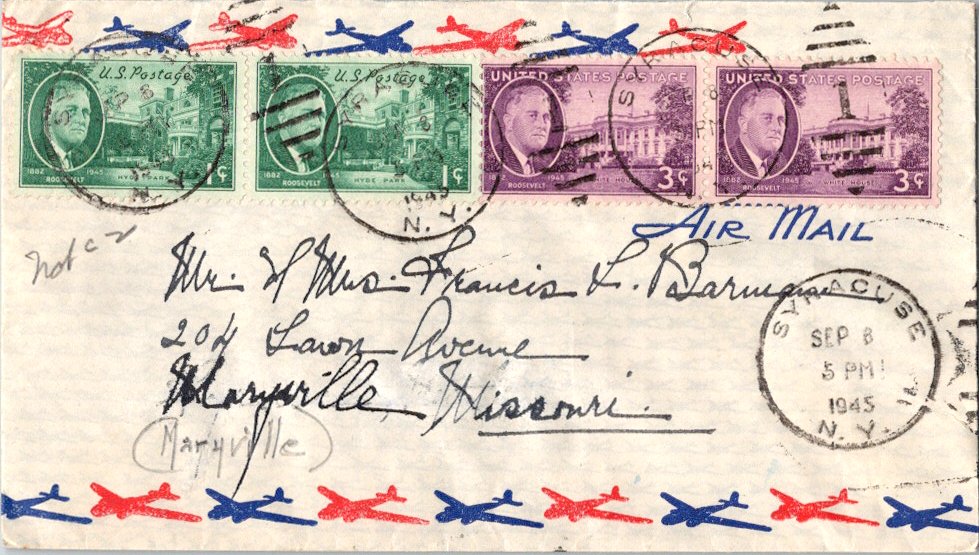 U.S. Postage
1882 1945
ROOSEVELT
HYDE PARK
1¢
U.S. Postage
1882 1945
ROOSEVELT
HYDE PARK
1¢
UNITED STATES POSTAGE
1882 1945
ROOSEVELT
WHITE HOUSE
3¢
UNITED STATES POSTAGE
1882 1945
ROOSEVELT
WHITE HOUSE
3¢
1945
N. Y.
SYRACUS
AIR MAIL
not c-2
Mr. & Mrs. Francis L. Barmann
204 Lawn Avenue
Maryville Missouri.
Maryville
SYRACUSE
SEP 8
5 PM
1945
N. Y.